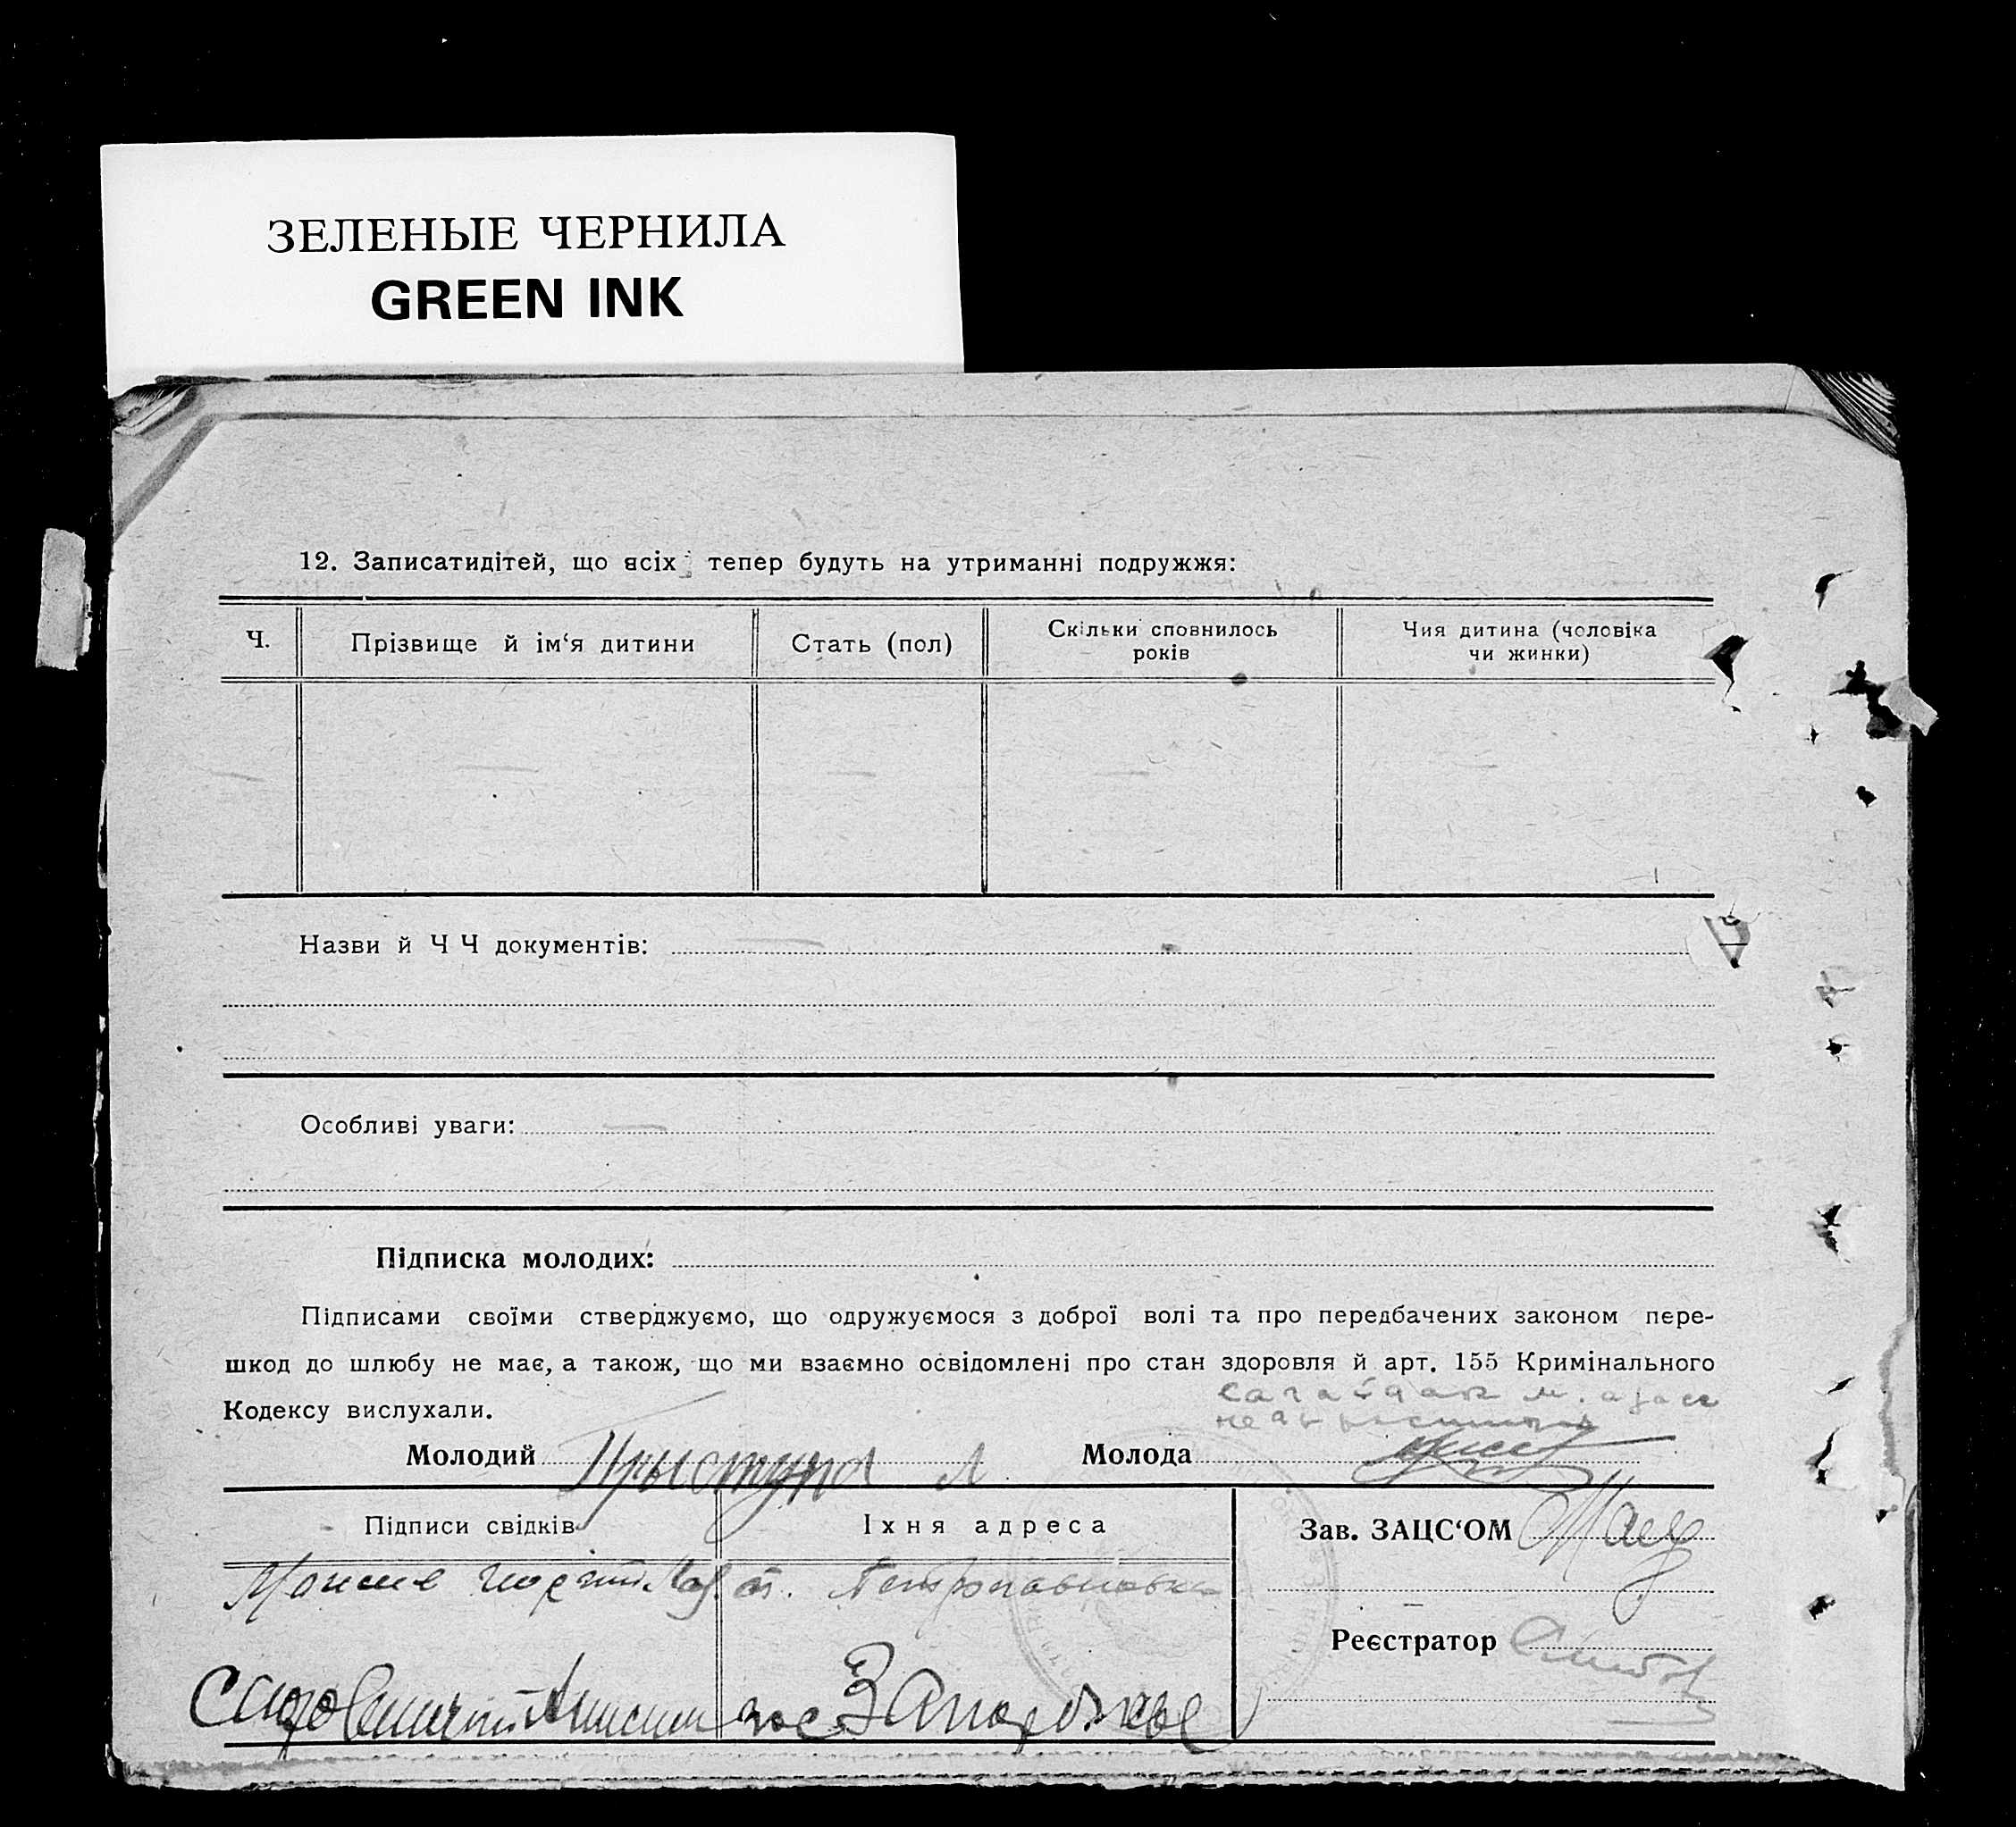 ЗЕЛЕНЫЕ ЧЕРНИЛА
GREEN INK
12. Записатидітей, що всіх тепер будуть на утриманні подружжя:
Ч.
Прізвище й ім‘я дитини
Стать (пол)
Скільки сповнилось
років
Чия дитина (чоловіка
чи жинки)
Назви й Ч Ч документів:
Особливі уваги:
Підписка молодих:
Підписами своїми стверджуємо, що одружуємося з доброї волі та про передбачених законом пере-
шкод до шлюбу не має, а також, що ми взаємно освідомлені про стан здоровля й арт. 155 Кримінального
Кодексу вислухали.
Молодий Прыступа Л
Молода
Підписи свідків
Їхня адреса
Зав. ЗАЦС‘ОМ
ст. Петропавловка
Реєстратор
Запорожье